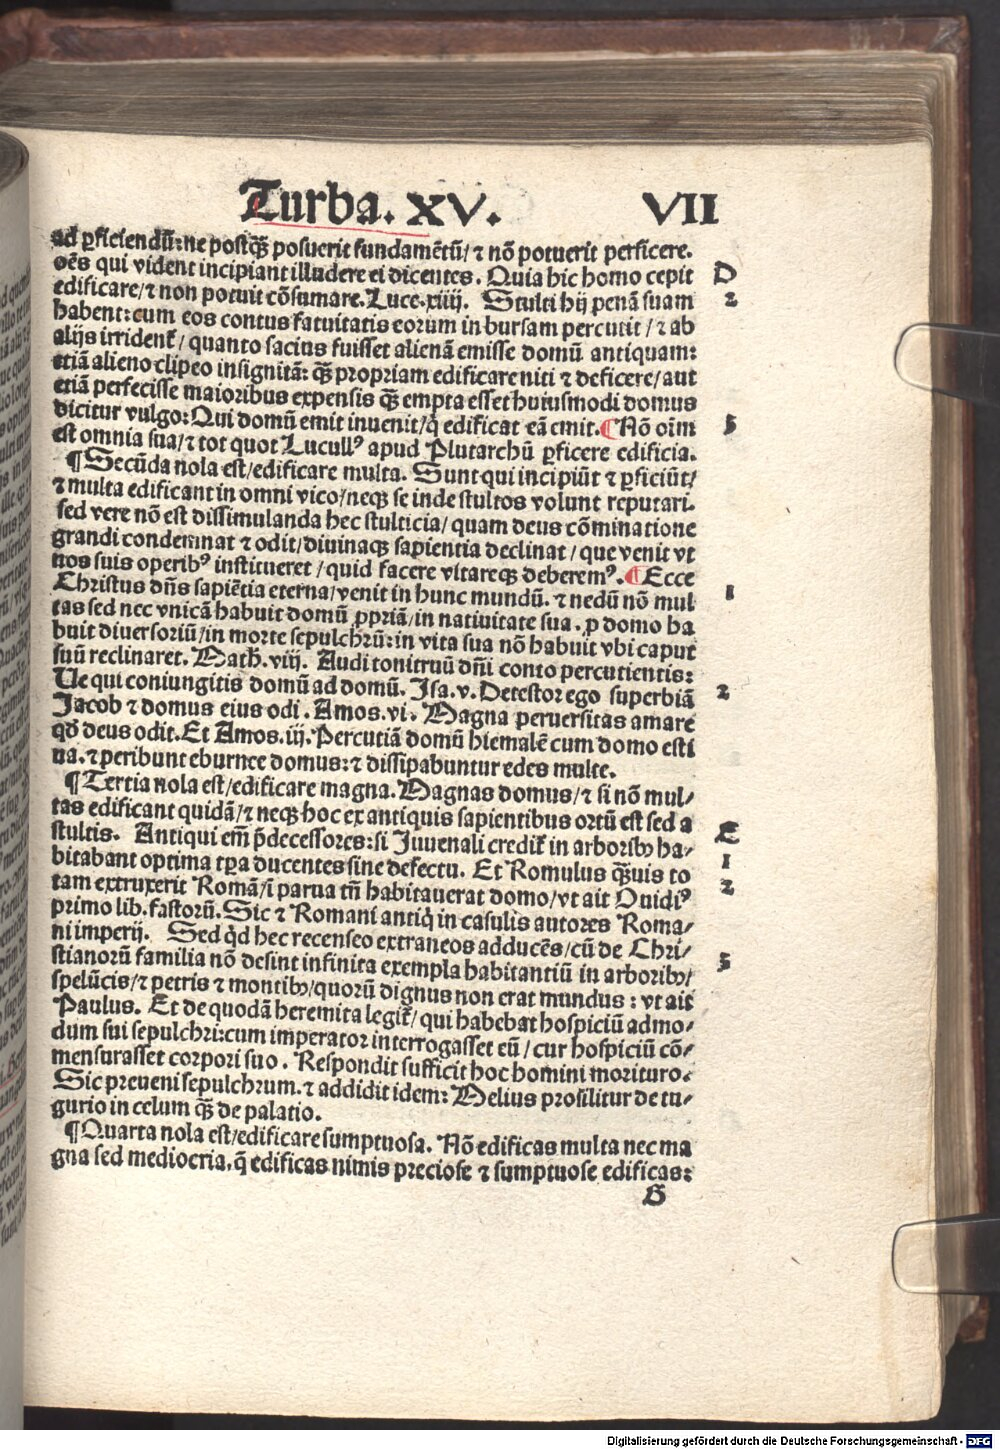 Turba. XV. VII
ad ꝑficiendū: ne postqꝫ̄ posuerit fundamētū/ ⁊ nō potuerit perficere.
oēs qui vident incipiant illudere ei dicentes. Quia hic homo cepit D
edificare/⁊ non potuit cōsumare. Luce.xiiij. Stulti hij penā suam 2
habent: cum eos contus fatuitatis eorum in bursam percutit/ ⁊ ab
alijs irridenť/ quanto sacius fuisset alienā emisse domū antiquam:
etiā alieno clipeo insignitā: qꝫ̄ propriam edificare niti ⁊ deficere/ aut
etiā perfecisse maioribus expensis qꝫ̄ empta esset huiusmodi domus
dicitur vulgo: Qui domū emit inuenit/ q̇ edificat eā emit. ¶ Nō oīm 3
est omnia sua/ ⁊ tot quot Lucullꝰ apud Plutarchū ꝑficere edificia.
¶ Secūda nola est/ edificare multa. Sunt qui incipiūt ⁊ ꝑficiūt/
⁊ multa edificant in omni vico/ neqꝫ se inde stultos volunt reputari.
sed vere nō est dissimulanda hec stulticia/ quam deus cōminatione
grandi condemnat ⁊ odit/ diuinaqꝫ sapientia declinat/ que venit vt
nos suis operibꝰ institueret/ quid facere vitareqꝫ deberemꝰ. ¶ Ecce
Christus dn̄s sapiētia eterna/ venit in hunc mundū. ⁊ nedū nō mul 1
tas sed nec vnicā habuit domū ꝓpriā/ in natiuitate sua. ꝓ domo ha
buit diuersoriū/ in morte sepulchrū: in vita sua nō habuit vbi caput
suū reclinaret. Math̄. viij. Audi tonitruū dn̄i conto percutientis:
Ue qui coniungitis domū ad domū. Isa. v. Detestor ego superbiā 2
Jacob ⁊ domus eius odi. Amos. vi. Magna peruersitas amare
qd̄ deus odit. Et Amos. iij. Percutiā domū hiemalē cum domo esti
ua. ⁊ peribunt eburnee domus: ⁊ dissipabuntur edes multe.
¶ Tertia nola est/ edificare magna. Magnas domus/ ⁊ si nō mul/
tas edificant quidā/ ⁊ neqꝫ hoc ex antiquis sapientibus ortū est sed a
stultis. Antiqui em̄ p̄decessores: si Juuenali credit̄ in arboribꝫ ha/ E
bitabant optima tꝑa ducentes sine defectu. Et Romulus qꝫ̄uis to 1
tam extruxerit Romā/ ī parua tn̄ habitauerat domo/ vt ait Ouidiꝰ 2
primo lib. fastorū. Sic ⁊ Romani antiq̇ in casulis autores Roma/
ni imperij. Sed qd̄ hec recenseo extraneos adducēs/ cū de Chri/
stianorū familia nō desint infinita exempla habitantiū in arboribꝫ/ 3
spelūcis/ ⁊ petris ⁊ montibꝫ/ quorū dignus non erat mundus: vt ait
Paulus. Et de quodā heremita legiť/ qui habebat hospiciū admo/
dum sui sepulchri: cum imperator interrogasset eū/ cur hospiciū cō/
mensurasset corpori suo. Respondit sufficit hoc homini morituro.
Sic preueni sepulchrum. ⁊ addidit idem: Melius prosilitur de tu/
gurio in celum qꝫ̄ de palatio.
¶ Quarta nola est/ edificare sumptuosa. Nō edificas multa nec ma
gna sed mediocria, q̄ edificas nimis preciose ⁊ sumptuose edificas:
G
Digitalisierung gefördert durch die Deutsche Forschungsgemeinschaft - DFG